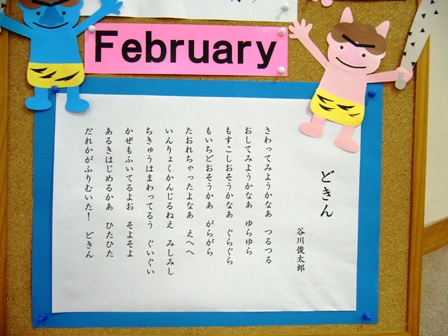 February
どきん
谷川俊太郎
さわってみようかなあ　つるつる
おしてみようかなあ　ゆらゆら
もすこしおそうかなあ　ぐらぐら
もいちどおそうかあ　がらがら
たおれちゃったよなあ　えへへ
いんりょくかんじるねえ　みしみし
ちきゅうはまわってるう　ぐいぐい
かぜもふいてるよお　そよそよ
あるきはじめるかあ　ひたひた
だれかがふりむいた！　どきん